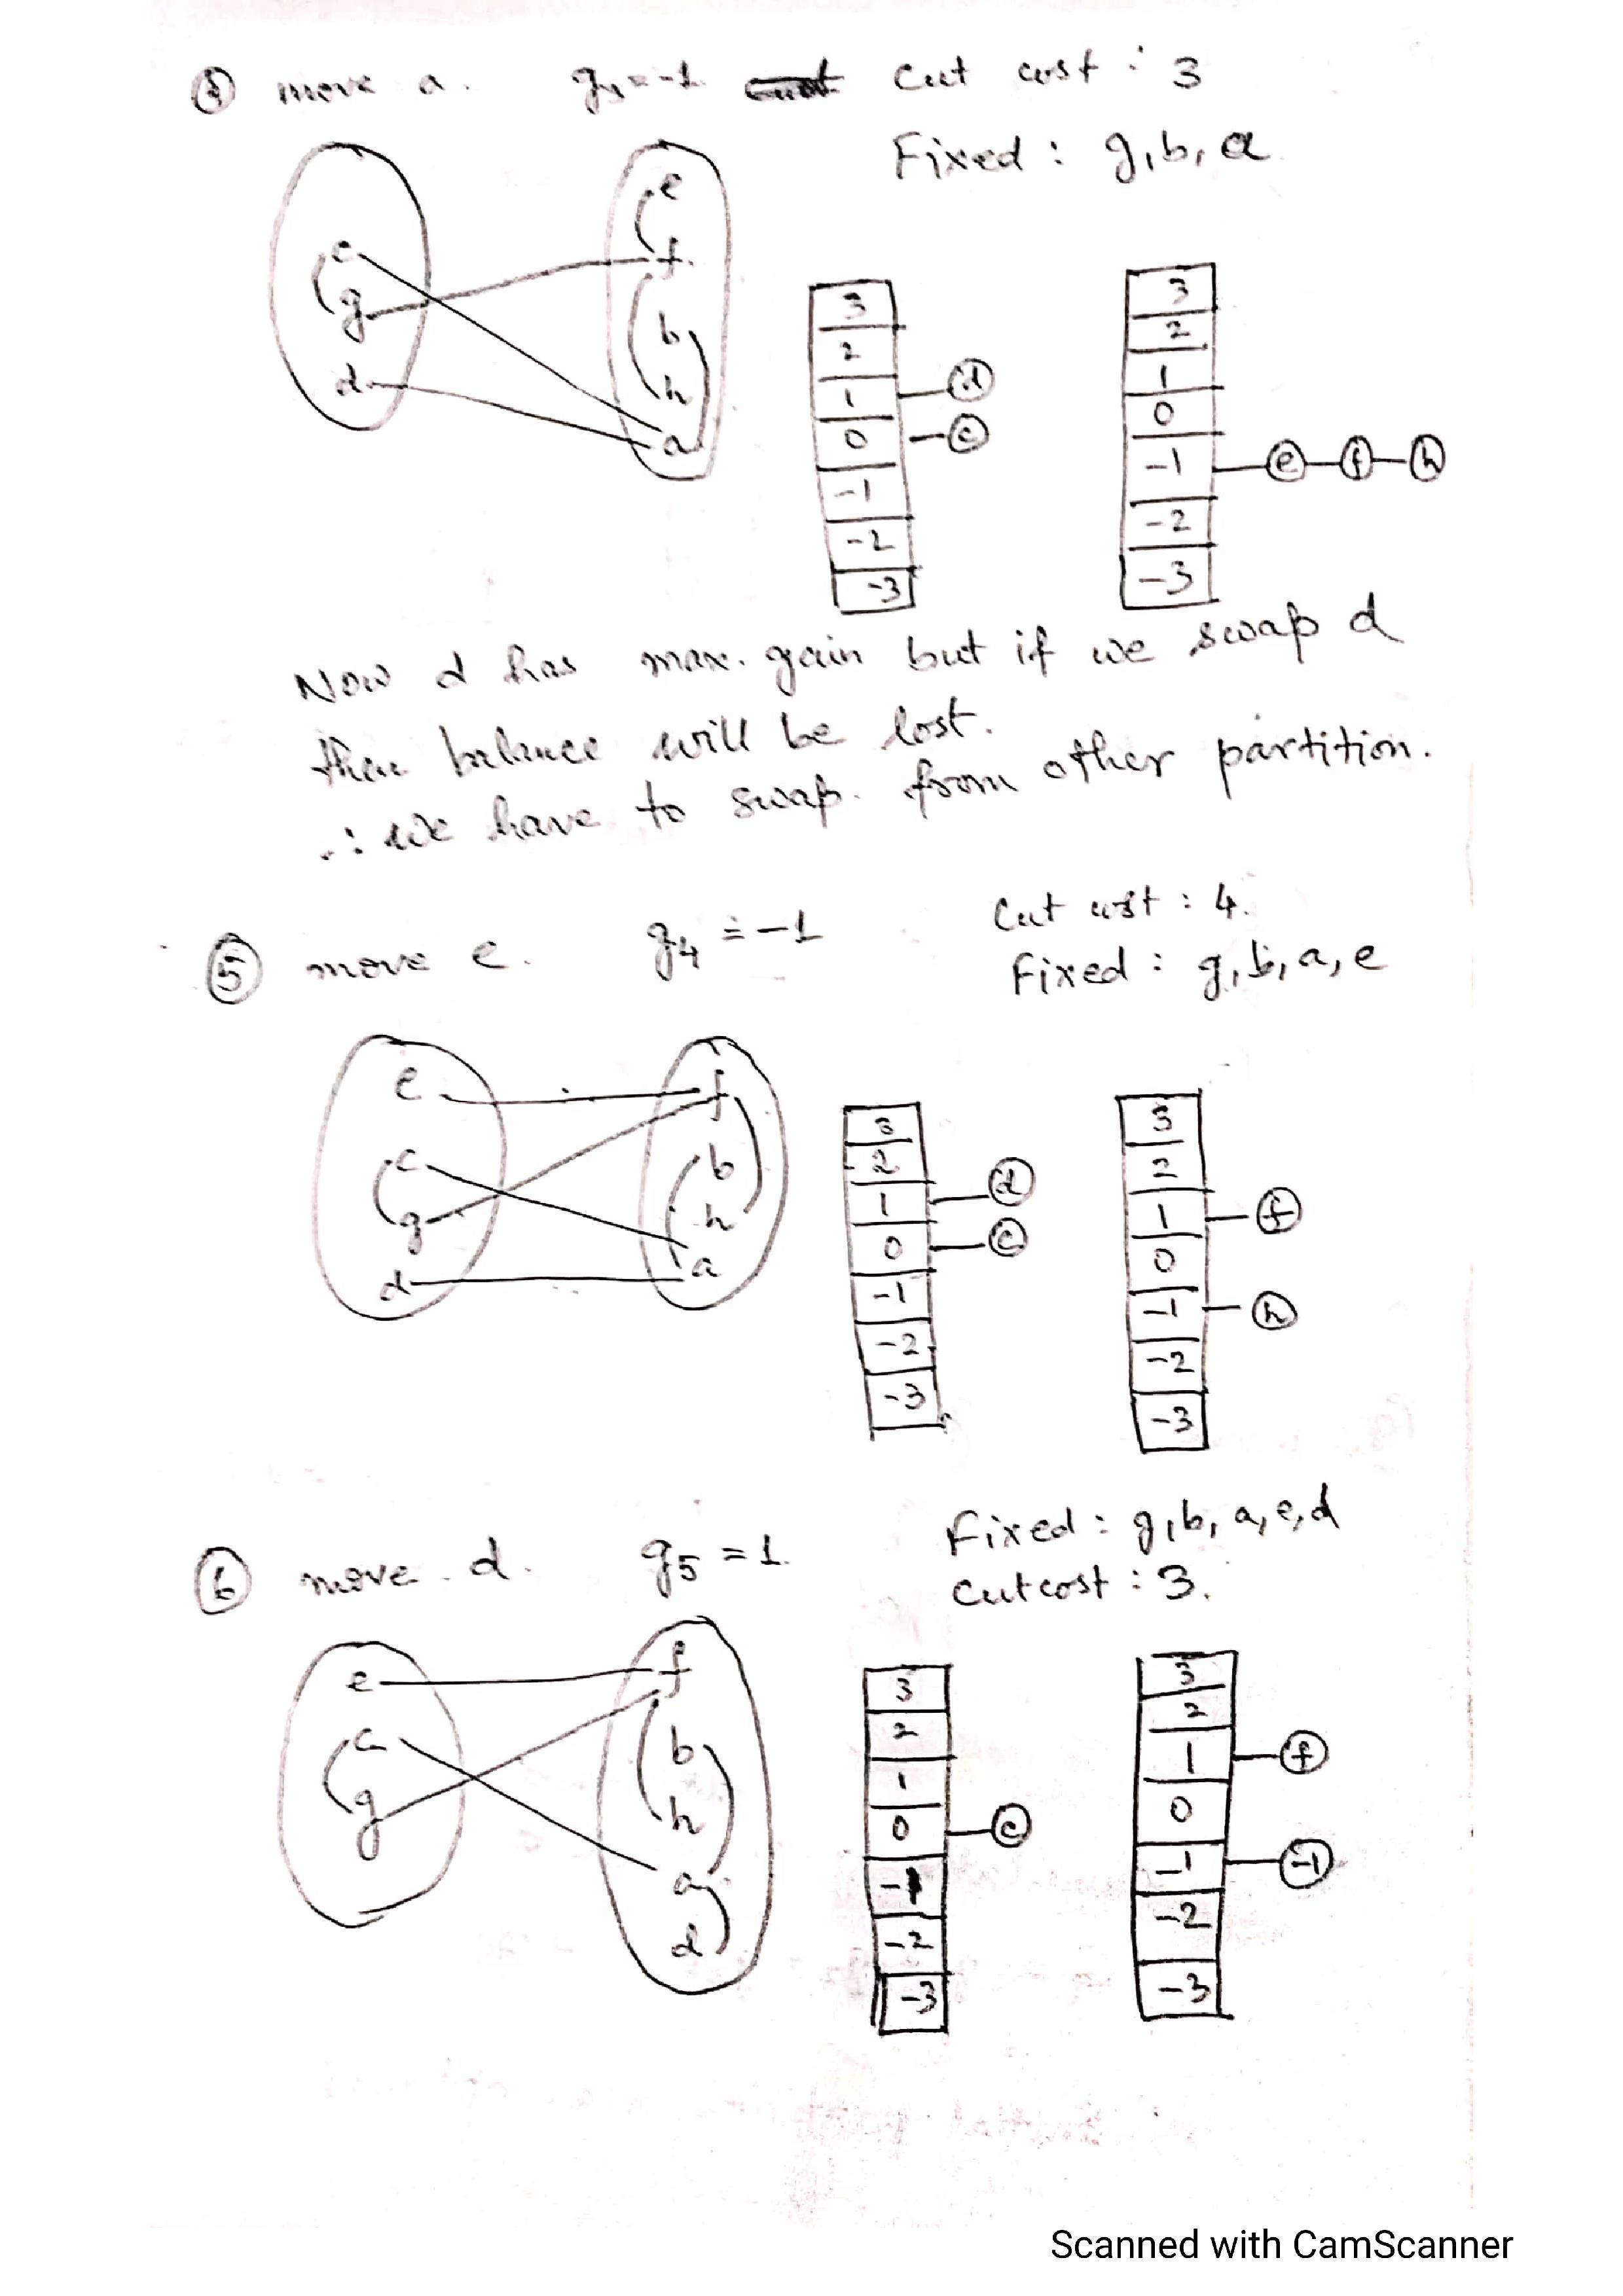 ④ move a. g₃=-1 Cut cost : 3
Fixed : g, b, a
e
c f
g b
d h
a
3
2
1 d
0 c
-1
-2
-3
3
2
1
0
-1 e f h
-2
-3
Now d has max. gain but if we swap d
then balance will be lost.
∴ we have to swap. from other partition.
⑤ move e. g₄ = -1 Cut cost : 4.
Fixed : g, b, a, e
e f
c b
g h
d a
3
2
1 d
0 c
-1
-2
-3
3
2
1 f
0
-1 h
-2
-3
⑥ move d. g₅ = 1. Fixed : g, b, a, e, d
Cutcost : 3.
e f
c b
g h
a
d
3
2
1
0 c
-1
-2
-3
3
2
1 f
0
-1 -1
-2
-3
Scanned with CamScanner